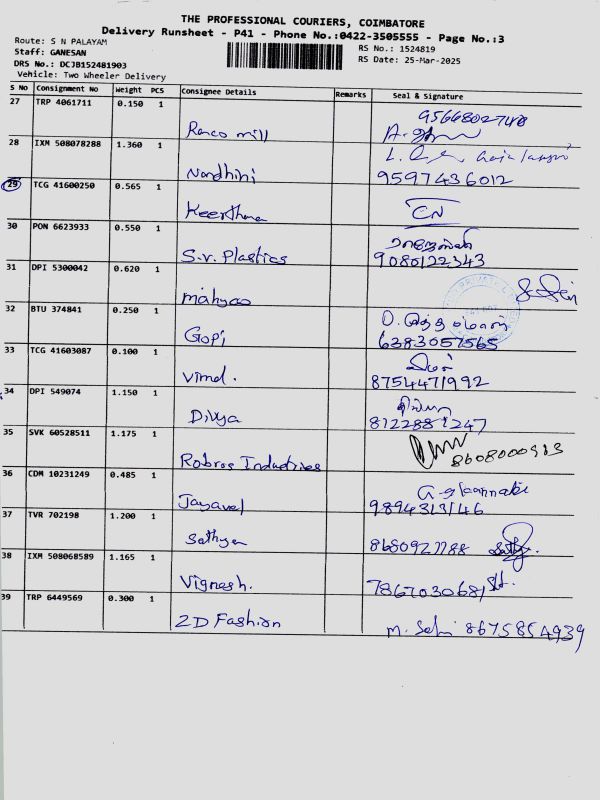 THE PROFESSIONAL COURIERS, COIMBATORE
Delivery Runsheet - P41 - Phone No.:0422-3505555 - Page No.:3
Route: S N PALAYAM
RS No.: 1524819
Staff: GANESAN
RS Date: 25-Mar-2025
DRS No.: DCJB152481903
Vehicle: Two Wheeler Delivery
S No Consignment No Weight PCS Consignee Details Remarks Seal & Signature
27 TRP 4061711 0.150 1
mill
28 IXM 508078288 1.360 1
Nandhini 9597436012
29 TCG 41600250 0.565 1
Keerthana CN
30 PON 6623933 0.550 1
S.V. Plastics 9080122343
31 DPI 5300042 0.620 1
32 BTU 374841 0.250 1
Gopi 6383057565
33 TCG 41603087 0.100 1
Vimal. 8754471992
34 DPI 549074 1.150 1
Divya 8122881247
35 SVK 60528511 1.175 1
Robros Industries
36 CDM 10231249 0.485 1
Jayavel 9894313146
37 TVR 702198 1.200 1
Sathya
38 IXM 508068589 1.165 1
Vignesh. 7867030681
39 TRP 6449569 0.300 1
2D Fashion 8675854939